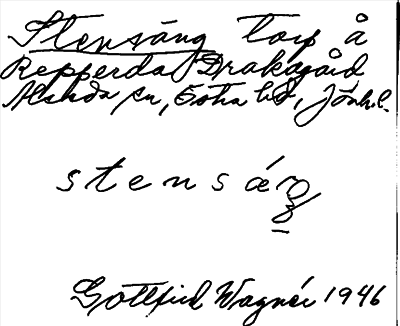 Stensäng torp å
Repperda Drakagård
Almda sn, Östra hd, Jönk. l.
stensäŋ
Gottfrid Wagnér 1946